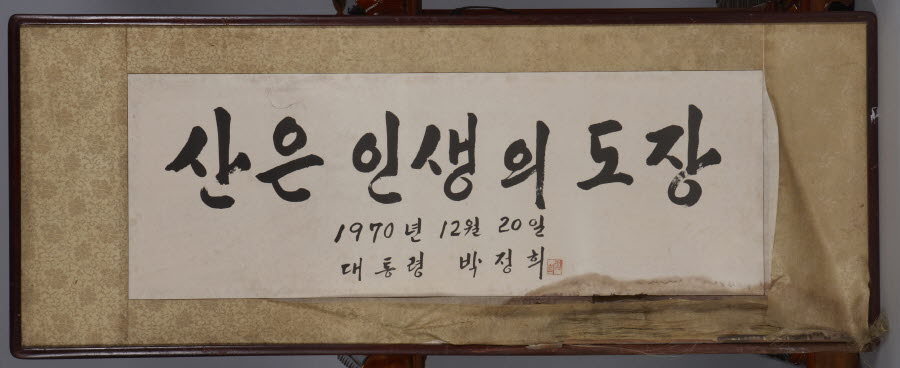 산은 인생의 도장
1970년 12월 20일
대통령 박정희